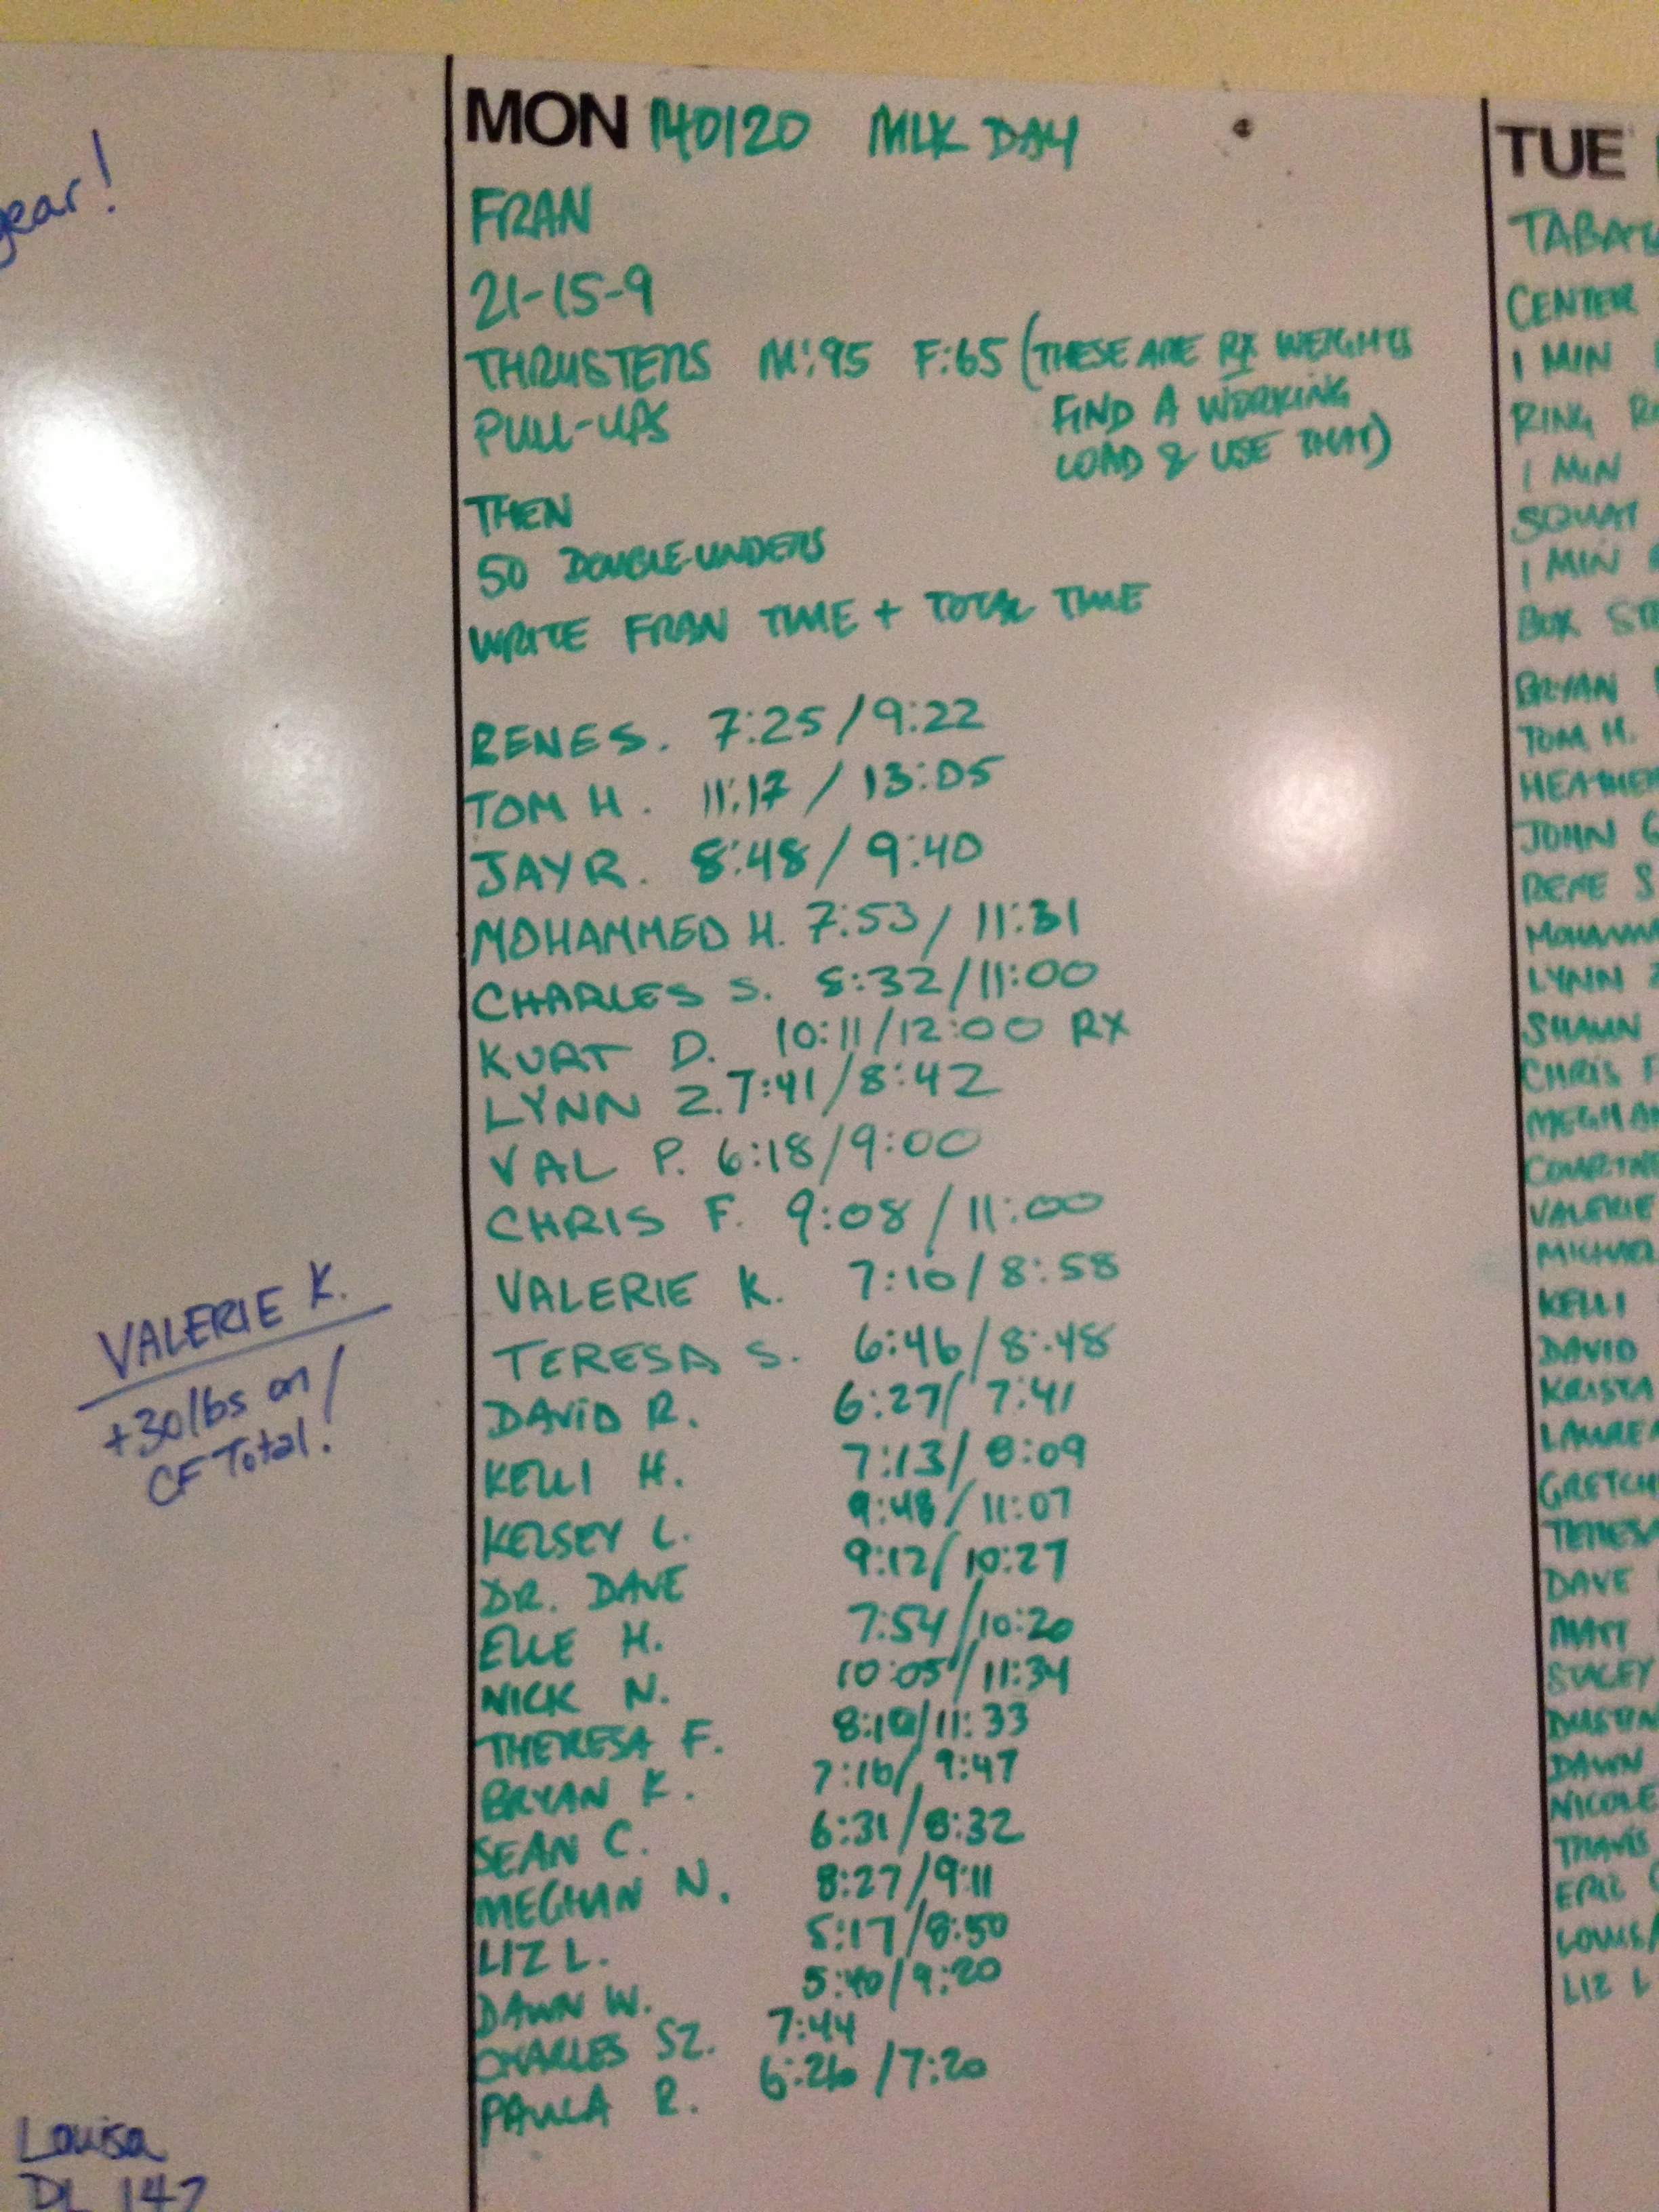 gear!
VALERIE K.
+30 lbs on
CF Total!
Louisa
DL 147
MON 140120 MLK DAY
FRAN
21-15-9
THRUSTERS M:95 F:65 (THESE ARE RX WEIGHTS
PULL-UPS FIND A WORKING
LOAD & USE THAT)
THEN
50 DOUBLE-UNDERS
WRITE FRAN TIME + TOTAL TIME
RENE S. 7:25/9:22
TOM H. 11:17 / 13:05
JAY R. 8:48/ 9:40
MOHAMMED H. 7:53/ 11:31
CHARLES S. 8:32/11:00
KURT D. 10:11/12:00 RX
LYNN Z. 7:41/8:42
VAL P. 6:18/9:00
CHRIS F. 9:08 / 11:00
VALERIE K. 7:10/8:58
TERESA S. 6:46/8:48
DAVID R. 6:27/ 7:41
KELLI H. 7:13/ 8:09
KELSEY L. 9:48/ 11:07
DR. DAVE 9:12/10:27
ELLE H. 7:54/10:20
NICK N. 10:05/11:34
THERESA F. /11:33
BRYAN K. 7:16/ 9:47
SEAN C. 6:31/8:32
MEGHAN N. 8:27/9:11
LIZ L. 5:17/8:50
DAWN W. 5:40/9:20
CHARLES SZ. 7:44
PAULA R. 6:26 /7:20
TUE
CENTER
1 MIN
RING
1 MIN
SQUAT
1 MIN
BOX
BRYAN
TOM H.
HEATHER
JOHN G
RENE S
LYNN Z
SHAWN
CHRIS F
VALERIE
MICHAEL
KELLI
DAVID
KRISTA
TERESA
DAVE
MATT
STACEY
DUSTIN
DAWN
NICOLE
TRAVIS
LIZ L